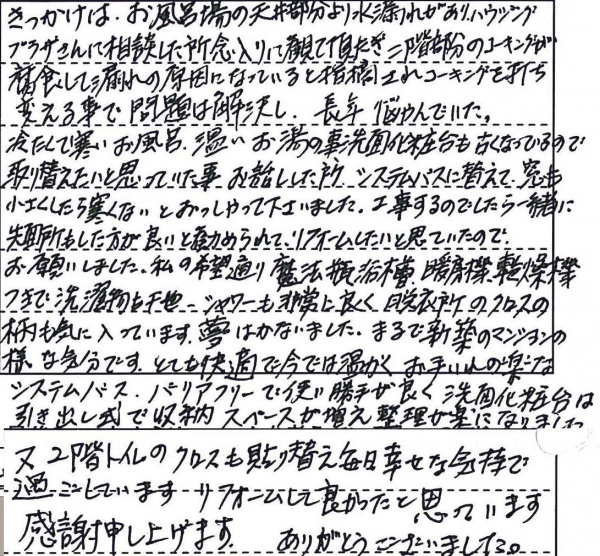 きっかけは、お風呂場の天井部分より水漏れがありハウジング
プラザさんに相談した所念入りに観て頂だき二階部分のコーキングが
腐食して漏れの原因になっていると指摘されコーキングを打ち
変える事で問題は解決し、長年悩やんでいた。
冷たくて寒いお風呂、温いお湯の事洗面化粧台も古くなっているので
取り替えたいと思っていた事お話しした所システムバスに替えて、窓も
小さくしたら寒くないとおっしゃって下さいました。工事するのでしたら一緒に
洗面所もした方が良いと勧められて、リフォームしたいと思ていたので
お願いしました。私の希望通り魔法瓶浴槽、暖房機、乾燥機
つきで洗濯物も干せ シャワーも非常に良く脱衣所のクロスの
柄も気に入っています。夢はかないました。まるで新築のマンションの
様な気分です。とても快適で今では温かく お手いれの楽な
システムバス、バリアフリーで使い勝手が良く洗面化粧台は
引き出し式で収納スペースが増え整理が楽になりました
又2階トイレのクロスも貼り替え毎日幸せな気持で
過ごしています リフォームして良かったと思っています
感謝申し上げます。 ありがとうございました。